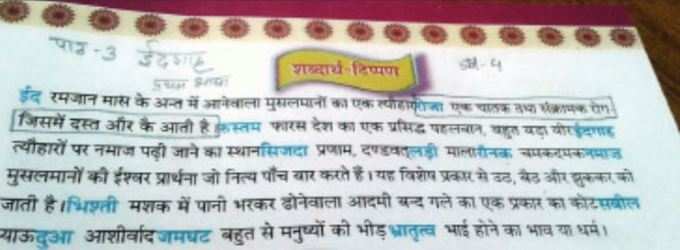 पाठ -3 ईदगाह
प्रथम भाषा
शब्दार्थ-टिप्पण
ईद रमजान मास के अन्त में आनेवाला मुसलमानों का एक त्यौहार रोजा एक घातक तथा संक्रामक रोग
जिसमें दस्त और कै आती है रूस्तम फारस देश का एक प्रसिद्ध पहलवान, बहुत बड़ा वीर ईदगाह
त्यौहारों पर नमाज पढ़ी जाने का स्थान सिजदा प्रणाम, दण्डवत लड़ी माला रौनक चमकदमक नमाज
मुसलमानों की ईश्वर प्रार्थना जो नित्य पाँच बार करते हैं। यह विशेष प्रकार से उठ, बैठ और झुककर की
जाती है। भिश्ती मशक में पानी भरकर ढोनेवाला आदमी बन्द गले का एक प्रकार का कोट सबील
प्याऊ दुआ आशीर्वाद जमघट बहुत से मनुष्यों की भीड़ भ्रातृत्व भाई होने का भाव या धर्म।